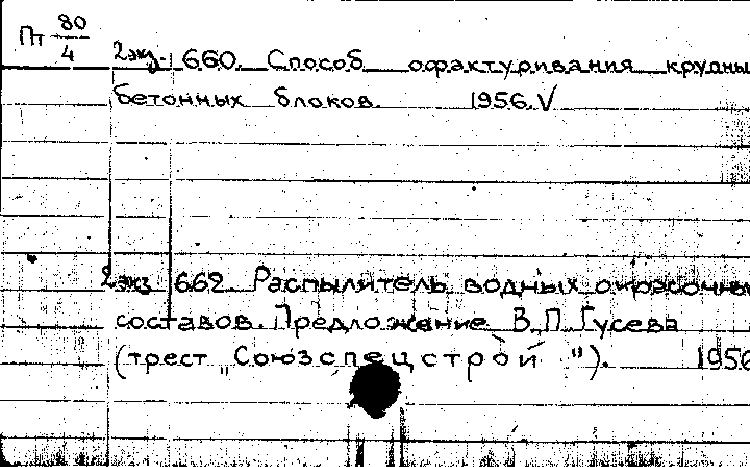 Пт 80/4
2экз. 660. Способ офактуривания крупны
бетонных блоков. 1956. V
2экз 662. Распылитель водных окрасочны
составов. Предложение В.П. Гусева
(трест „Союзспецстрой"). 1956